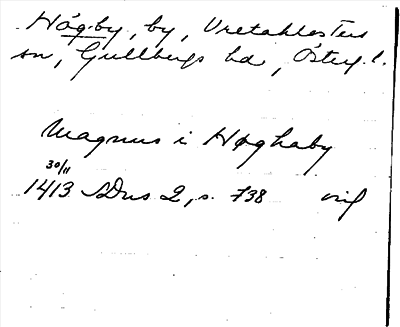 Högby, by, Vretaklosters
sn, Gullbergs hd, Österg.l.
Magnus i Høghaby
30/11
1413 SDns 2, s. 738 orig